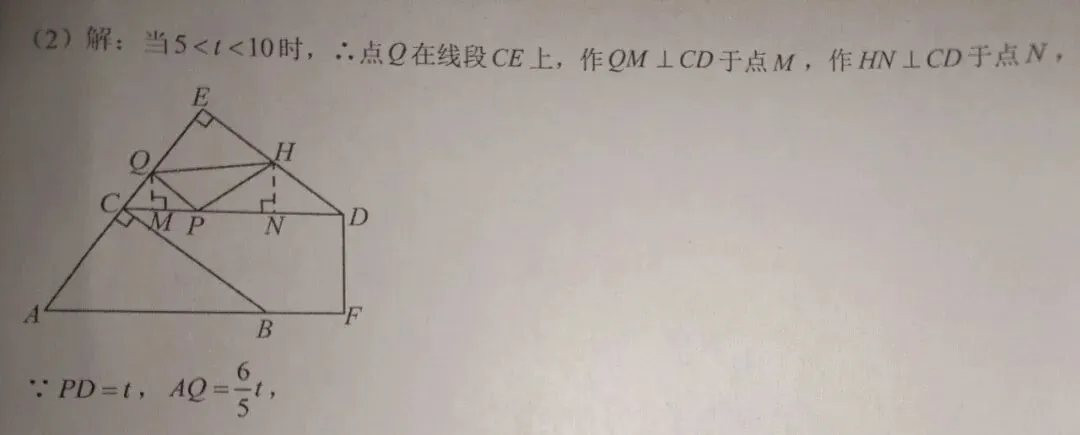 (2)解：当5<t<10时，∴点Q在线段CE上，作QM⊥CD于点M，作HN⊥CD于点N，
E
Q
H
C
M
P
N
D
A
B
F
∵PD=t，AQ=6/5t，